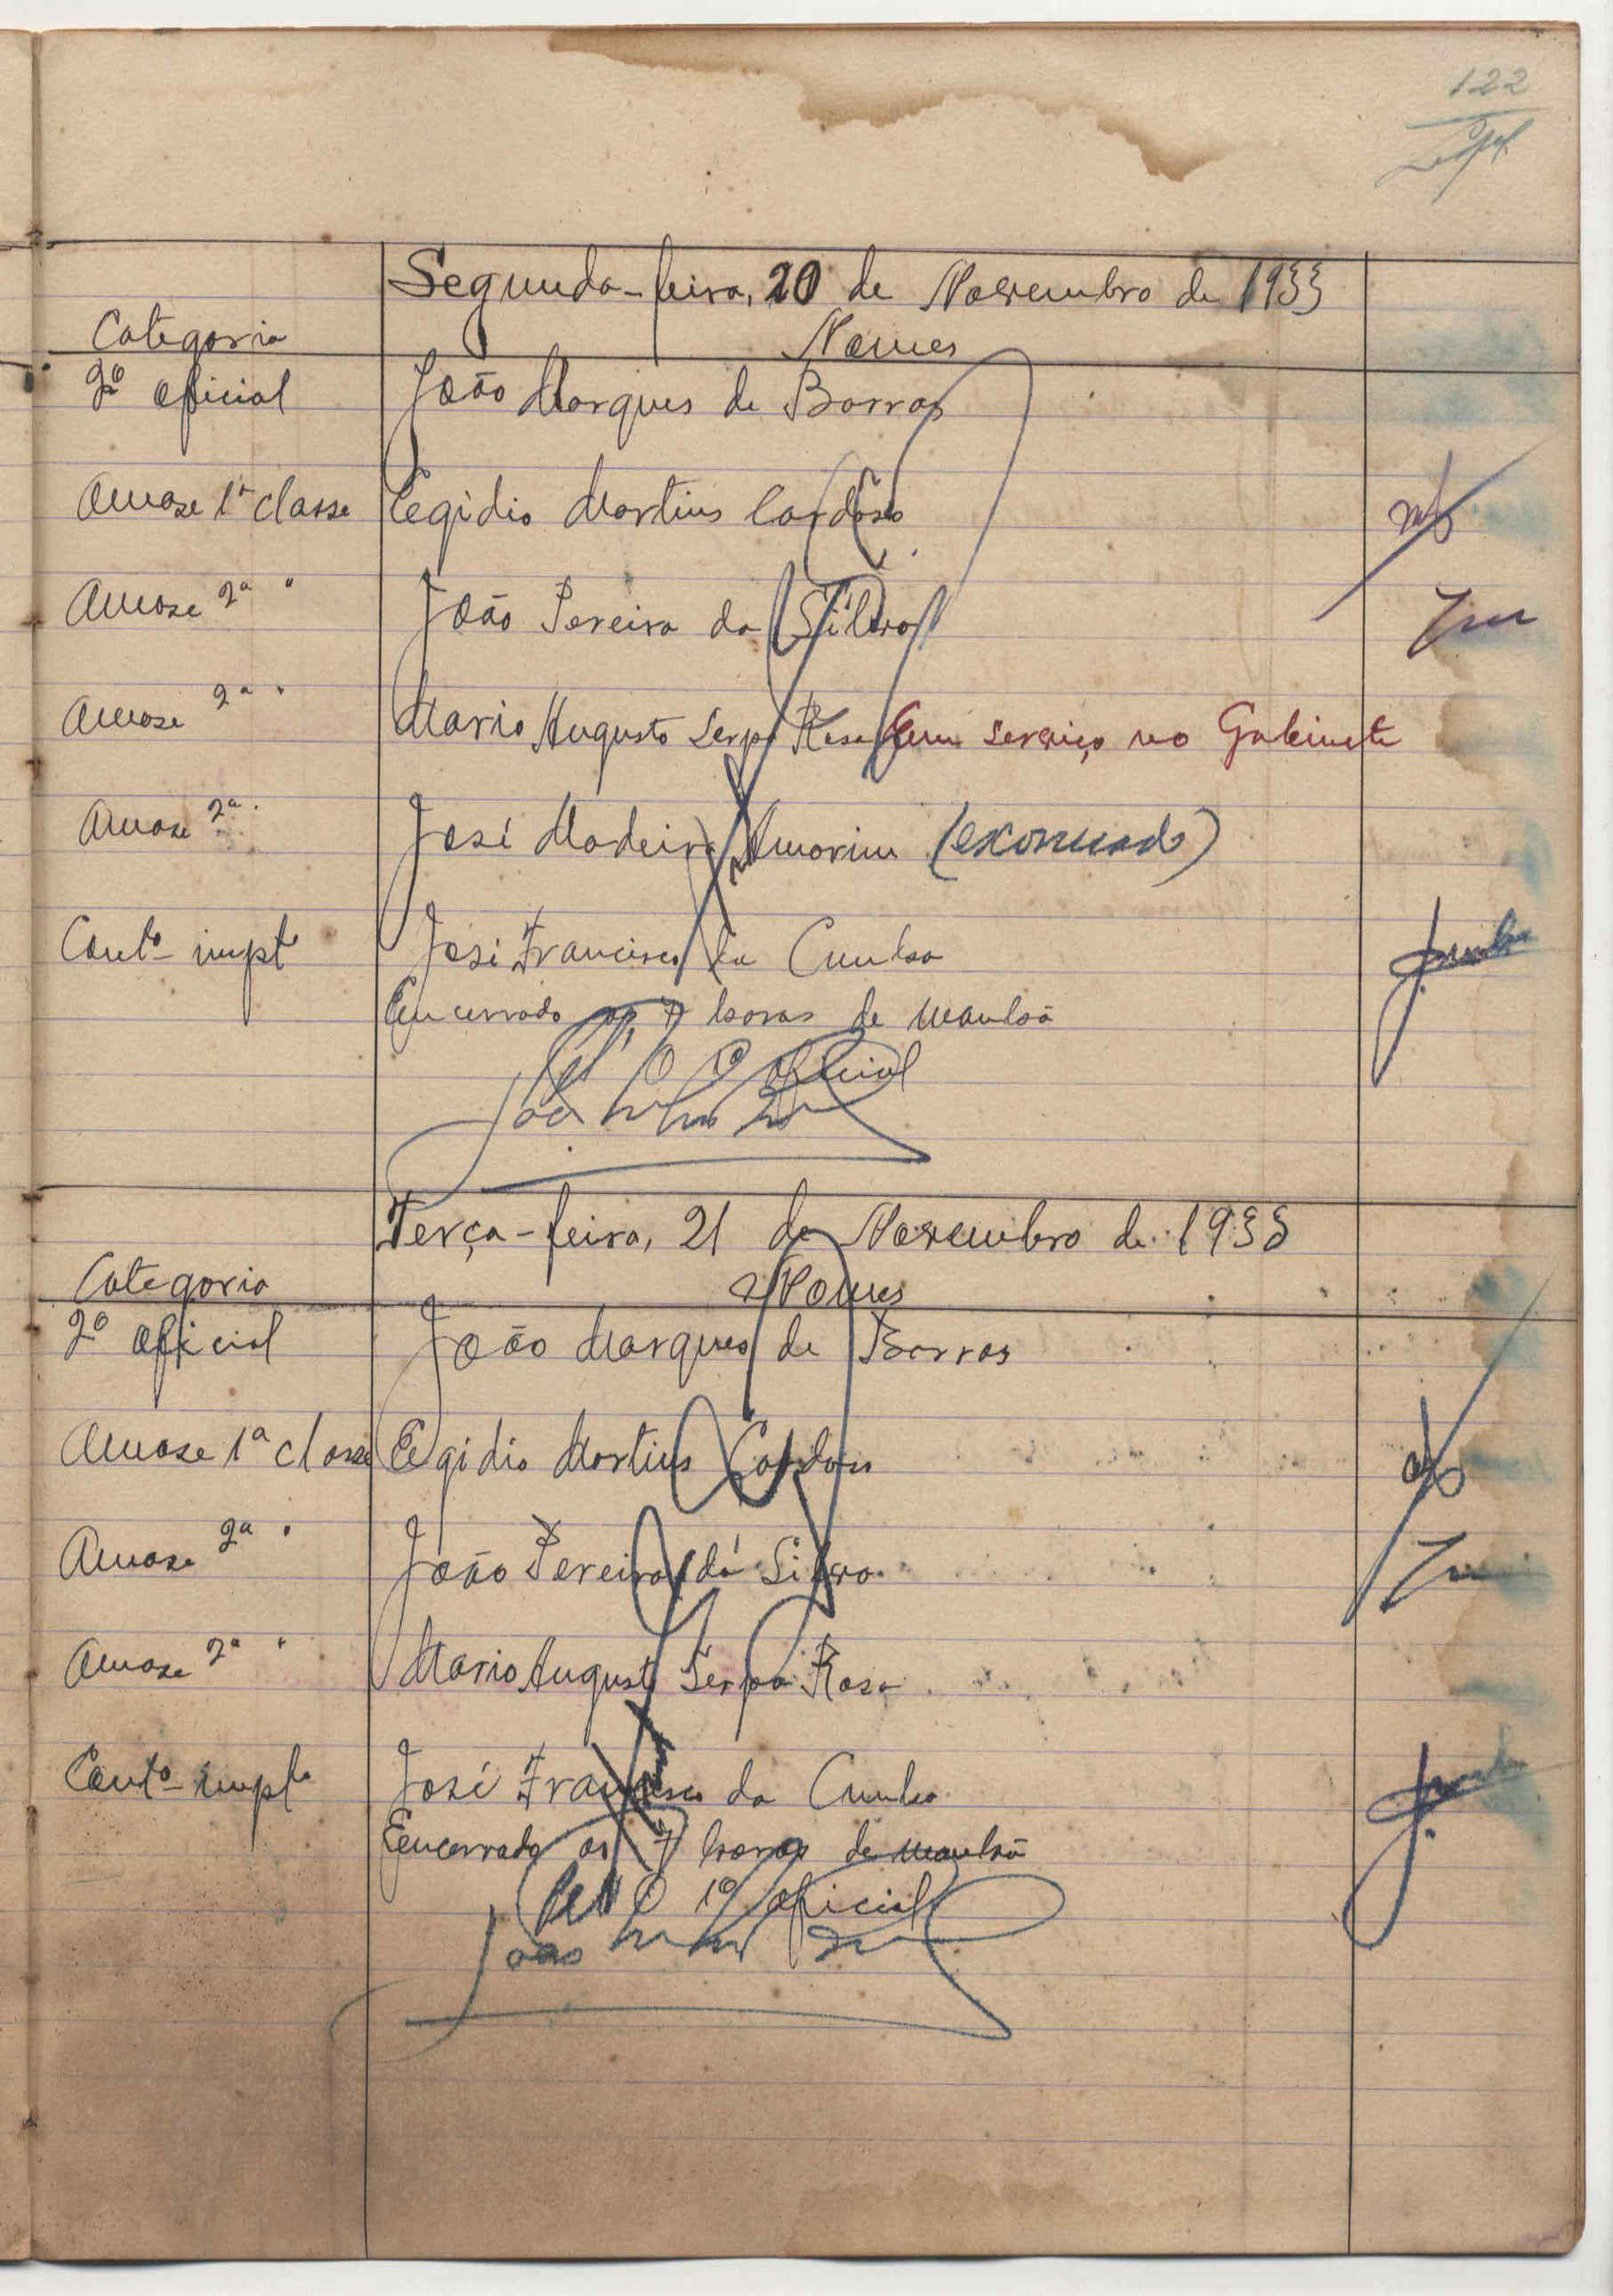 122
Segunda-feira, 20 de Novembro de 1933
Categoria Nomes
2º oficial João Marques de Barros
Amase 1ª classe Egidio Martins Cardoso
Amase 2ª " João Pereira da Silva
Amase 2ª " Mario Augusto Serpa Rosa Em serviço no Gabinete
Amase 2ª " José Madeira Amorim (exonerado)
Contº impt José Francisco da Cunha
Encerrado as 7 horas de manhã
oficial
João
Terça-feira, 21 de Novembro de 1933
Categoria Nomes
2º oficial João Marques de Barros
Amase 1ª classe Egidio Martins Cardoso
Amase 2ª " João Pereira da Silva
Amase 2ª " Mario Augusto Serpa Rosa
Contº impt José Francisco da Cunha
Encerrado as 7 horas de manhã
O 1º oficial
João